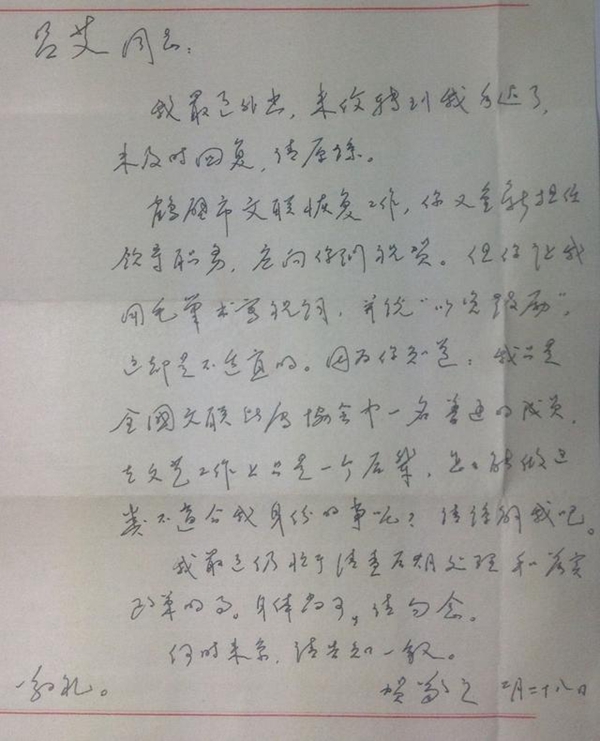 吕艾同志：
我最近外出，来信转到我手迟了，
未及时回复，请原谅。
鹤壁市文联恢复工作，你又重新担任
领导职务，应向你们祝贺。但你让我
用毛笔书写祝词，并说“以资鼓励”，
这却是不适宜的。因为你知道：我只是
全国文联所属协会中一名普通的成员，
在文艺工作上只是一个后辈，怎能做这
类不适合我身份的事呢？请谅解我吧。
我最近仍忙于清查后期处理和落实
政策的事。身体尚可，请勿念。
何时来京，请告知一叙。
敬礼。
贺敬之 二月二十八日